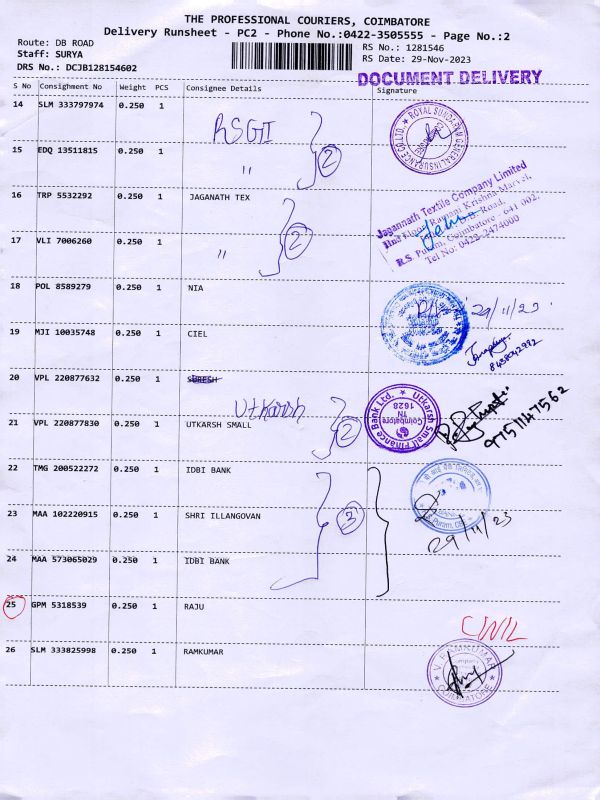 THE PROFESSIONAL COURIERS, COIMBATORE
Delivery Runsheet - PC2 - Phone No.:0422-3505555 - Page No.:2
Route: DB ROAD
Staff: SURYA
DRS No.: DCJB128154602
RS No.: 1281546
RS Date: 29-Nov-2023
DOCUMENT DELIVERY
S No Consighment No Weight PCS Consignee Details Signature
14 SLM 333797974 0.250 1
RSGI
ROYAL SUNDARAM GENERAL INSURANCE CO LTD.
15 EDQ 13511815 0.250 1 "
2
16 TRP 5532292 0.250 1 JAGANATH TEX
Jagannath Textile Company Limited
R.S. Puram, Coimbatore - 641 002.
Tel No: 0422-2474000
17 VLI 7006260 0.250 1 "
2
18 POL 8589279 0.250 1 NIA
29/11/23
19 MJI 10035748 0.250 1 CIEL
20 VPL 220877632 0.250 1 SURESH
Utkarsh
Utkarsh Small Finance Bank Ltd.
Coimbatore
TN
1628
21 VPL 220877830 0.250 1 UTKARSH SMALL
2
9751147562
22 TMG 200522272 0.250 1 IDBI BANK
23 MAA 102220915 0.250 1 SHRI ILLANGOVAN
3
29/11/23
24 MAA 573065029 0.250 1 IDBI BANK
25 GPM 5318539 0.250 1 RAJU
26 SLM 333825998 0.250 1 RAMKUMAR
V. RAMKUMAR
COIMBATORE